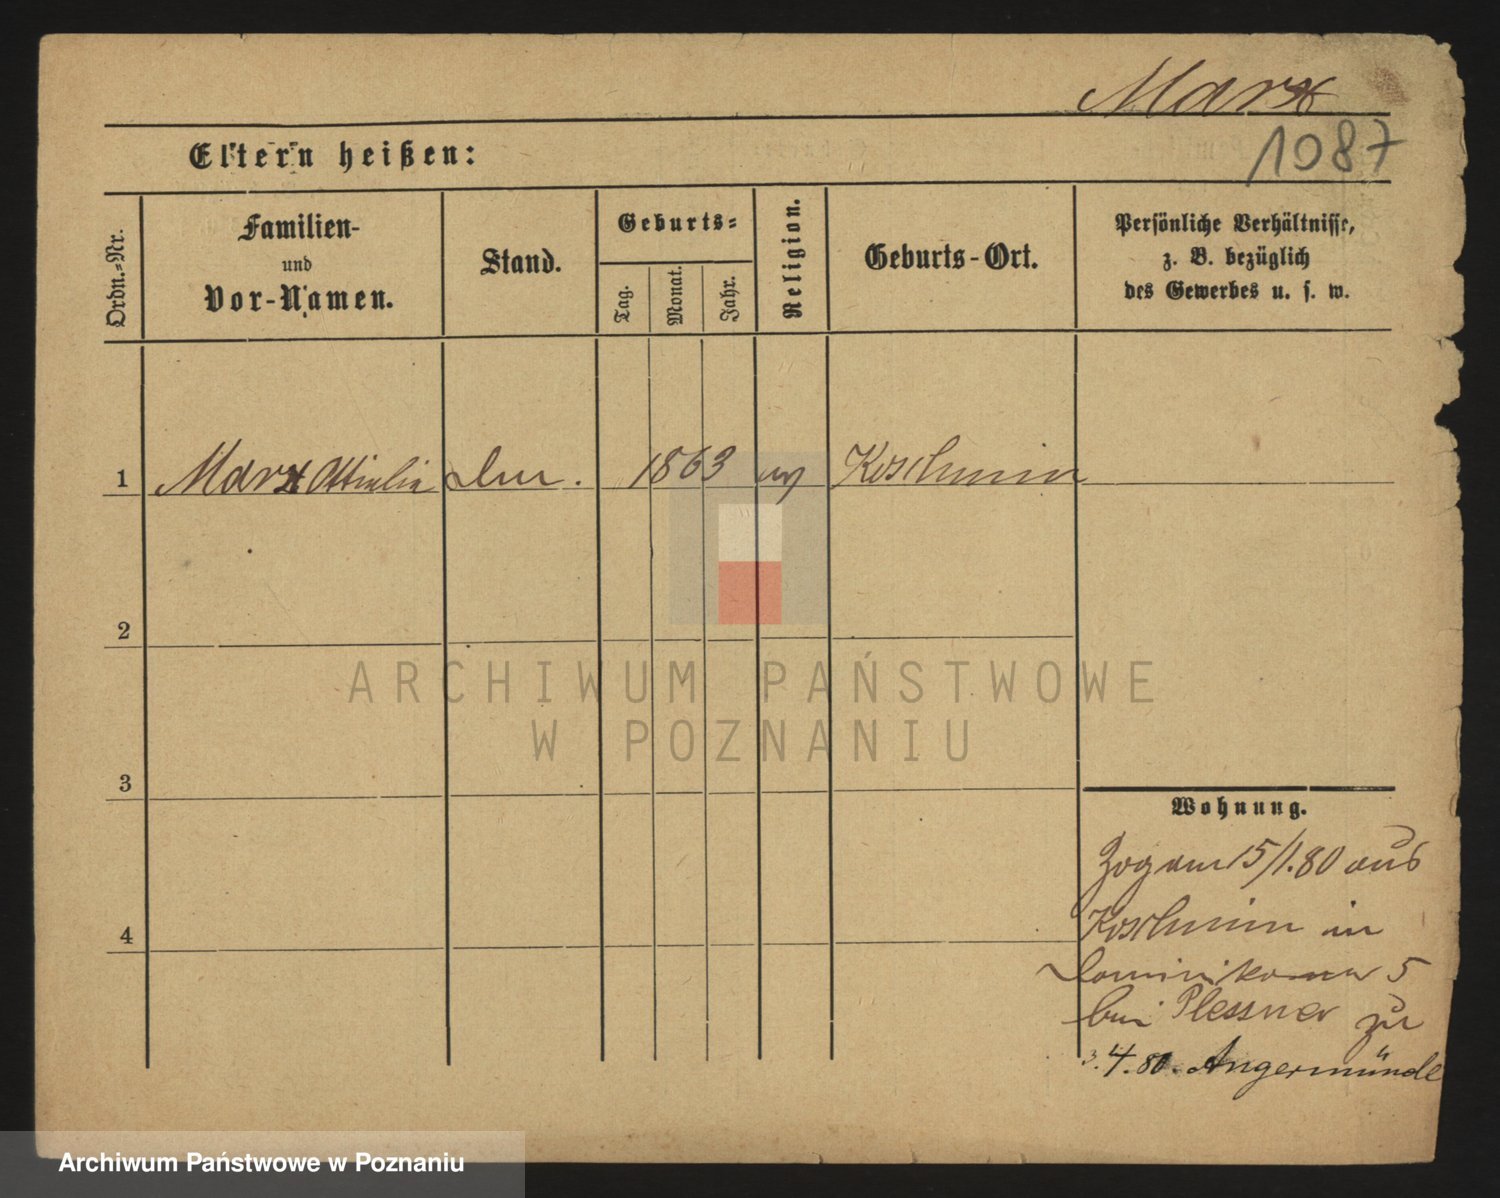 Marx
1087
Eltern heißen:
Ordn.-Nr.
Familien-
und
Vor-Namen.
Stand.
Geburts-
Tag.
Monat.
Jahr.
Religion.
Geburts-Ort.
Persönliche Verhältnisse,
z. B. bezüglich
des Gewerbes u. s. w.
1 Marx 1863 Koschmin
2
3
4
Wohnung.
Zog am 15/1.80 aus
Koschmin in
Dominikaner 5
bei Plessner zu
3.4.80. Angermünde
ARCHIWUM PAŃSTWOWE
W POZNANIU
Archiwum Państwowe w Poznaniu